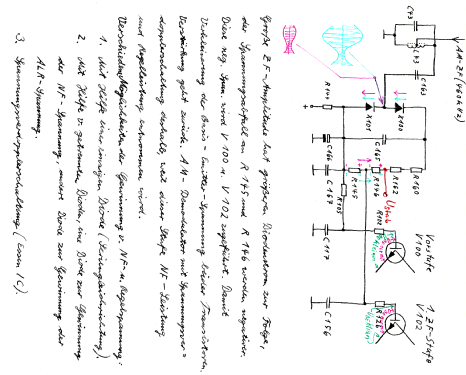 AM-ZF (460kHz)
C 73
L 73
C 163
R 144
+
V 101
V 100
C 165
C 166
C 167
R 145
R 146
R 162
R 160
Ustab
R 105
R 102
C 147
Vorstufe
V 100
1. ZF-Stufe
V 102
R 126
C 156
Große ZF-Amplitude hat größeren Diodenstrom zur Folge,
der Spannungsabfall an R 145 und R 146 werden negativer.
Diese neg. Spann. wird V 100 u. V 102 zugeführt. Damit
Verkleinerung der Basis-Emitter-Spannung beider Transistoren,
Verstärkung geht zurück. AM-Demodulator mit Spannungsver-
dopplerschaltung deshalb, weil dieser Stufe NF-Leistung
und Regelleistung entnommen wird.
Verschiedene Möglichkeiten der Gewinnung v. NF- u. Regelspannung:
1. Mit Hilfe einer einzigen Diode (Einweggleichrichtung)
2. Mit Hilfe v. getrennten Dioden, eine Diode zur Gewinnung
der NF-Spannung, andere Diode zur Gewinnung der
ALR-Spannung.
3. Spannungsverdopplerschaltung (wenn IC)